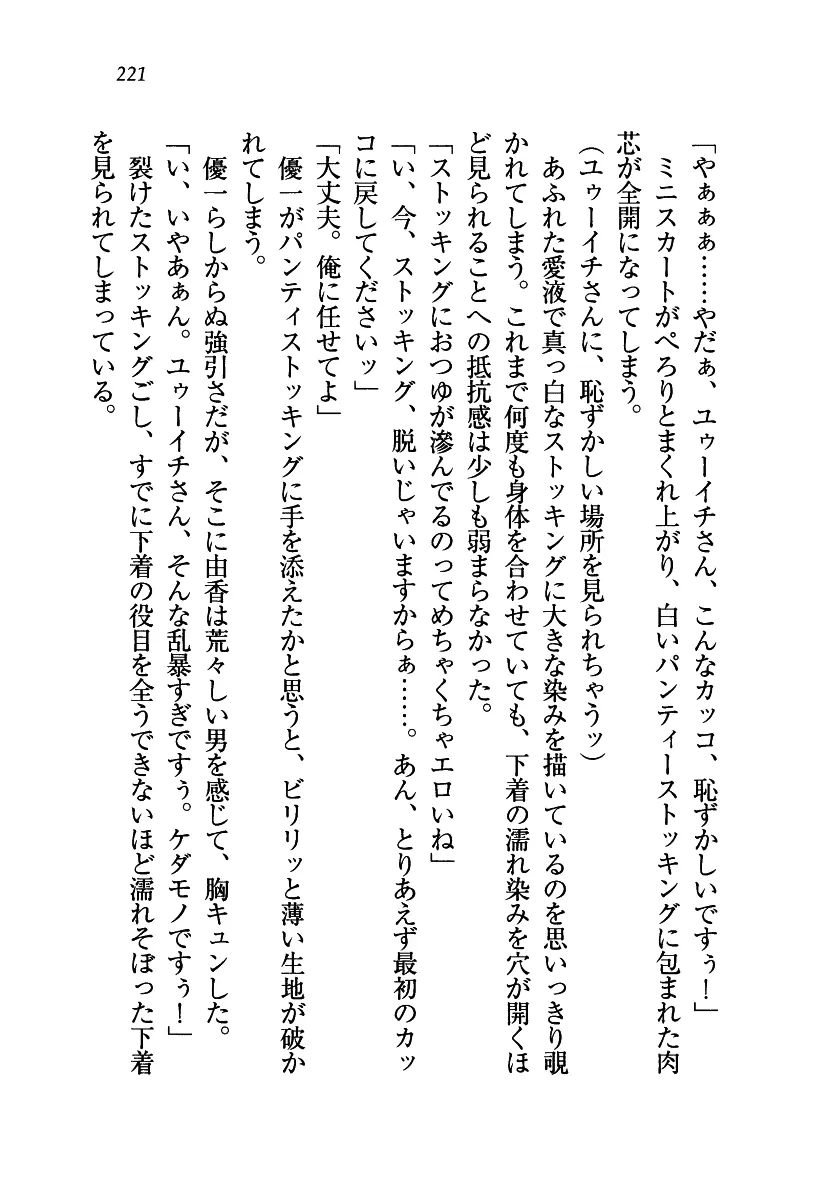 221
「やぁぁぁ……やだぁ、ユゥーイチさん、こんなカッコ、恥ずかしいですぅ！」
　ミニスカートがぺろりとまくれ上がり、白いパンティーストッキングに包まれた肉
芯が全開になってしまう。
（ユゥーイチさんに、恥ずかしい場所を見られちゃうッ）
　あふれた愛液で真っ白なストッキングに大きな染みを描いているのを思いっきり覗
かれてしまう。これまで何度も身体を合わせていても、下着の濡れ染みを穴が開くほ
ど見られることへの抵抗感は少しも弱まらなかった。
「ストッキングにおつゆが滲んでるのってめちゃくちゃエロいね」
「い、今、ストッキング、脱いじゃいますからぁ……。あん、とりあえず最初のカッ
コに戻してくださいッ」
「大丈夫。俺に任せてよ」
　優一がパンティストッキングに手を添えたかと思うと、ビリリッと薄い生地が破か
れてしまう。
　優一らしからぬ強引さだが、そこに由香は荒々しい男を感じて、胸キュンした。
「い、いやあぁん。ユゥーイチさん、そんな乱暴すぎですぅ。ケダモノですぅ！」
　裂けたストッキングごし、すでに下着の役目を全うできないほど濡れそぼった下着
を見られてしまっている。